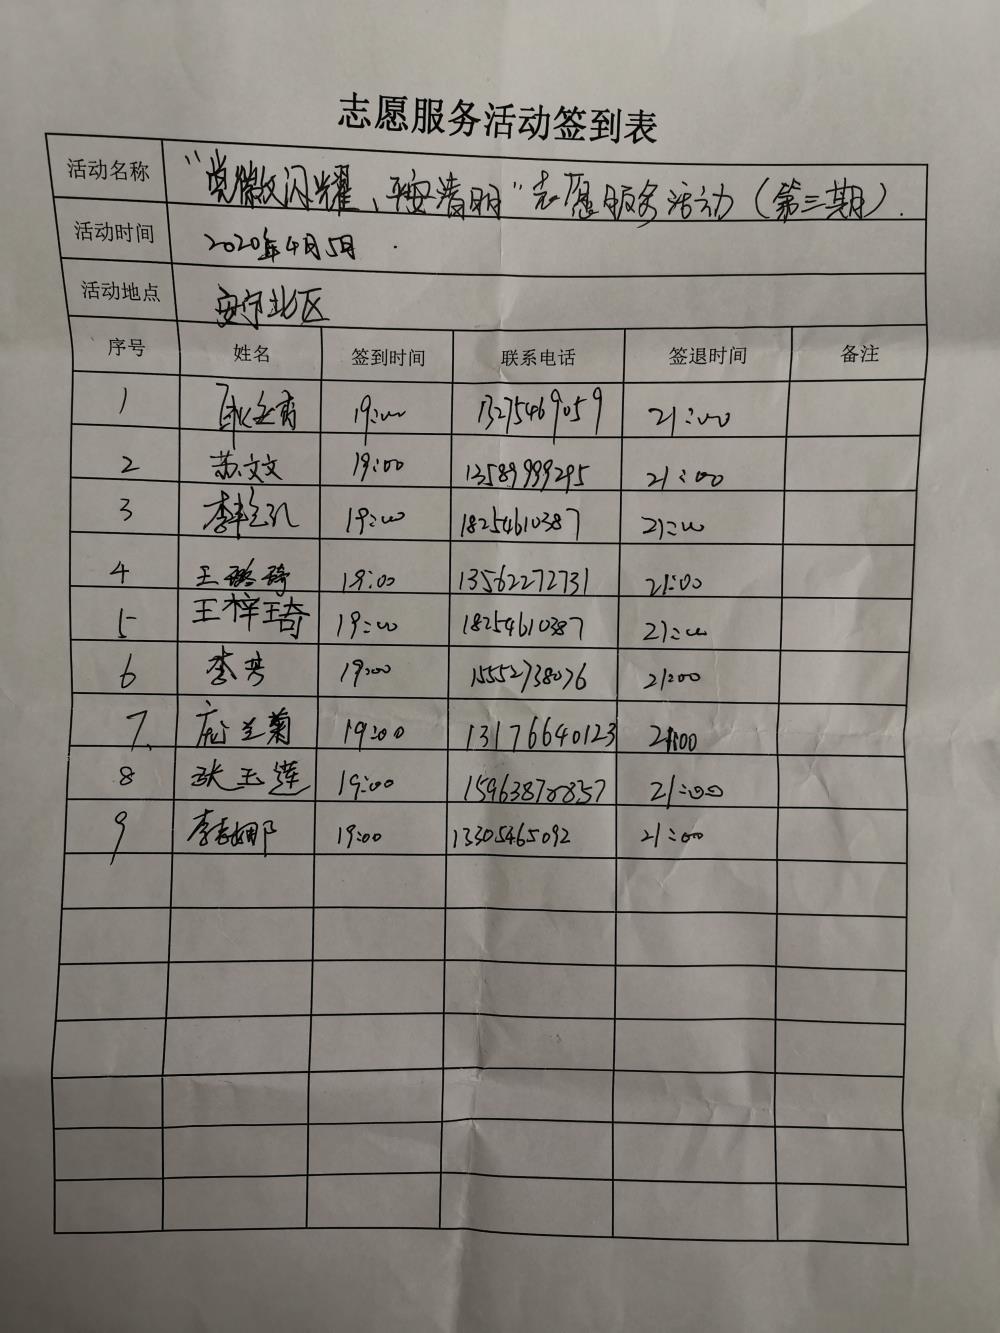 志愿服务活动签到表
活动名称 “党徽闪耀、平安清明”志愿服务活动（第三期）.
活动时间 2020年4月5日.
活动地点 安宁北区
序号 姓名 签到时间 联系电话 签退时间 备注
1 19:00 13275469059 21:00
2 苏文文 19:00 13589999295 21:00
3 19:00 18254610387 21:00
4 王璐琦 19:00 13562272731 21:00
5 王梓琦 19:00 18254610387 21:00
6 李芳 19:00 15552738076 21:00
7. 兰菊 19:00 13176640123 21:00
8 张玉莲 19:00 21:00
9 李春娜 19:00 13305465092 21:00